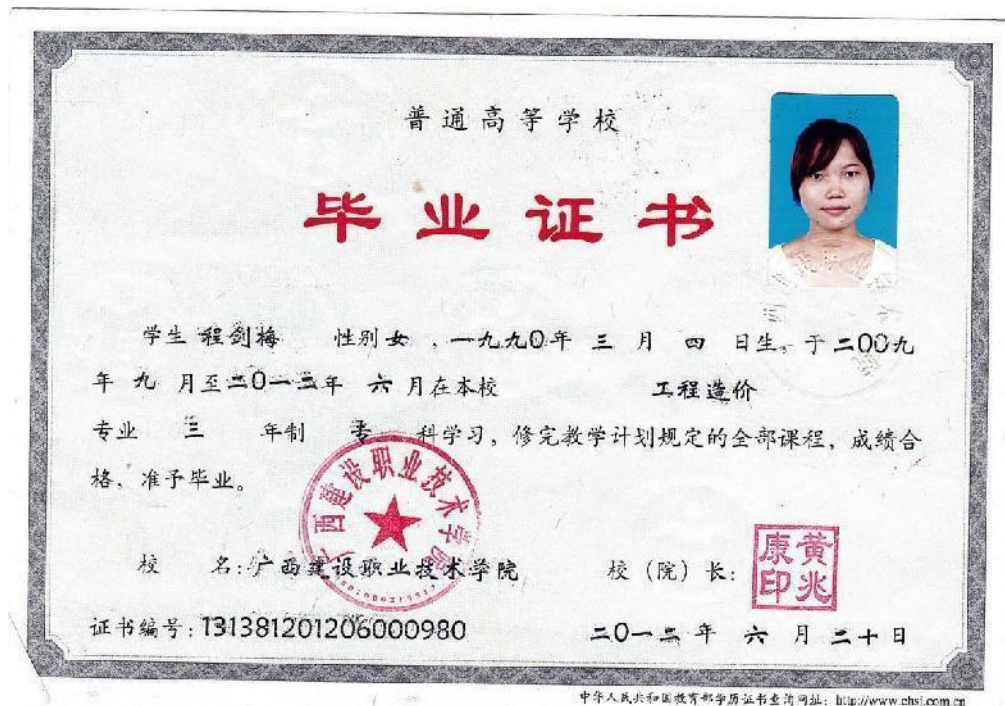 普通高等学校
毕业证书
学生 程剑梅 性别 女 ，一九九0年 三 月 四 日生，于二00九
年 九 月至二0一二年 六 月在本校 工程造价
专业 三 年制 专 科学习，修完教学计划规定的全部课程，成绩合
格，准予毕业。
广西建设职业技术学院
校 名：广西建设职业技术学院 校（院）长：
黄兆康印
证书编号：131381201206000980 二0一二年 六 月 二十日
中华人民共和国教育部学历证书查询网址：http://www.chsi.com.cn